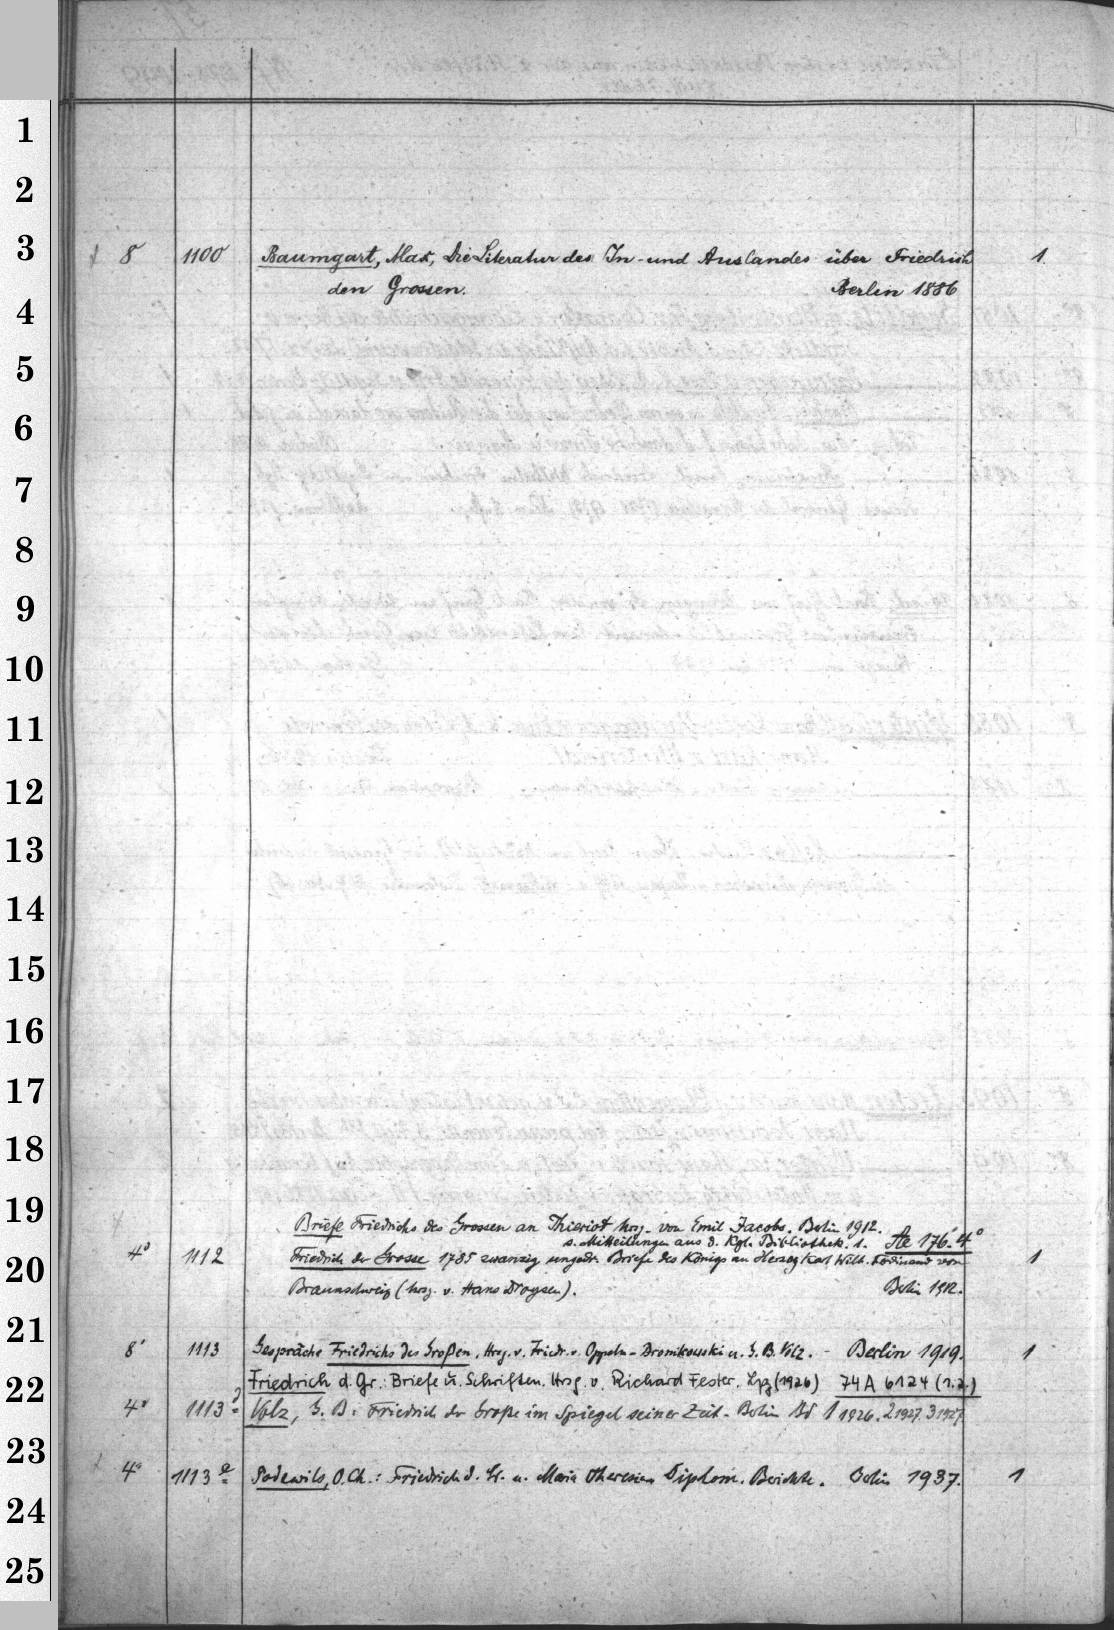 1
2
3
8 1100 Baumgart, Max, Die Literatur des In- und Auslandes über Friedrich 1.
den Grossen. Berlin 1886
4
5
6
7
8
9
10
11
12
13
14
15
16
17
18
19
Briefe Friedrichs des Grossen an Thieriot hrsg. von Emil Jacobs. Berlin 1912.
s. Mitteilungen aus d. Kgl. Bibliothek. 1. Ae 176. 4°
20
4° 1112 Friedrich der Grosse 1785 zwanzig ungedr. Briefe des Königs an Herzog Karl Wilh. Ferdinand von 1
Braunschweig (hrsg. v. Hans Droysen). Berlin 1912.
21
8° 1113 Gespräche Friedrichs des Großen. Hrsg. v. Friedr. v. Oppeln-Bronikowski u. G. B. Volz. - Berlin 1919. 1
22
Friedrich d. Gr.: Briefe u. Schriften. Hrsg. v. Richard Fester. Lpz (1926) 74 A 6124 (1.2.)
4° 1113 Volz, G. B.: Friedrich der Große im Spiegel seiner Zeit. Berlin Bd 1 1926. 2 1927. 3 1927.
23
4° 1113 a Podewils, O. Ch.: Friedrich d. Gr. u. Maria Theresia. Diplom. Berichte. Berlin 1937. 1
24
25